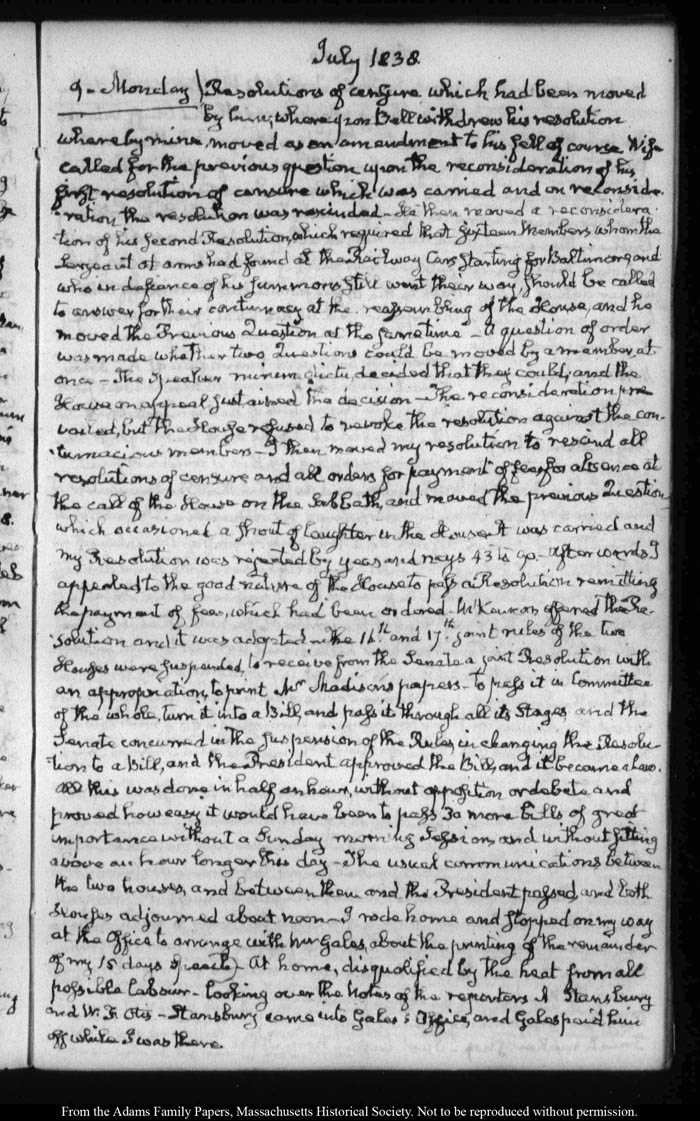 July 1838.
9 - Monday) Resolutions of censure which had been moved
by him, whereupon Bell withdrew his resolution
whereby mine, moved as an amendment to his fell of course Wise
called for the previous question upon the reconsideration of his
first resolution of censure which was carried and on reconside-
-ration, the resolution was rescinded - He then moved a reconsidera-
tion of his second Resolution, which required that sixteen Members whom the
Sergeant at arms had found at the Railway Cars starting for Baltimore, and
who in defiance of his summons still went their way, should be called
to answer for their contumacy at the reassembling of the House, and he
moved the Previous Question at the same time - A question of order
was made whether two Questions could be moved by a member at
once - The Speaker mirum dictu, decided that they could, and the
House on appeal sustained the decision - The reconsideration pre
vailed, but the House refused to revoke the resolution against the con-
-tumacious members - I then moved my resolution to rescind all
resolutions of censure and all orders for payment of fees for absence at
the call of the House on the Sabbath, and moved the previous Question,
which occasioned a shout of laughter in the House. It was carried and
my Resolution was rejected by yeas and nays 43 to 90. - Afterwards I
appealed to the good nature of the House to pass a Resolution remitting
the payment of fees, which had been ordered. McKennan offered the Re-
-solution and it was adopted - The 16th and 17th joint rules of the two
Houses were suspended, to receive from the Senate a joint Resolution with
an appropriation, to print Mr Madison's papers - to pass it in Committee
of the whole, turn it into a Bill, and pass it through all its stages, and the
Senate concurred in the suspension of the Rules, in changing the Resolu-
-tion to a Bill, and the President approved the Bill, and it became a Law.
All this was done in half an hour, without opposition or debate and
proved how easy it would have been to pass 30 more bills of great
importance without a Sunday morning Session, and without sitting
above an hour longer this day - The usual communications between
the two houses, and between them and the President passed, and both
Houses adjourned about noon - I rode home and stopped on my way
at the Office to arrange with Mr Gales, about the printing of the remainder
of my 15 days speech). At home, disqualified by the heat from all
possible labour - looking over the Notes of the reporters Stansbury
and W. F. Otis - Stansbury came into Gales's Office, and Gales paid him
off while I was there.
From the Adams Family Papers, Massachusetts Historical Society. Not to be reproduced without permission.